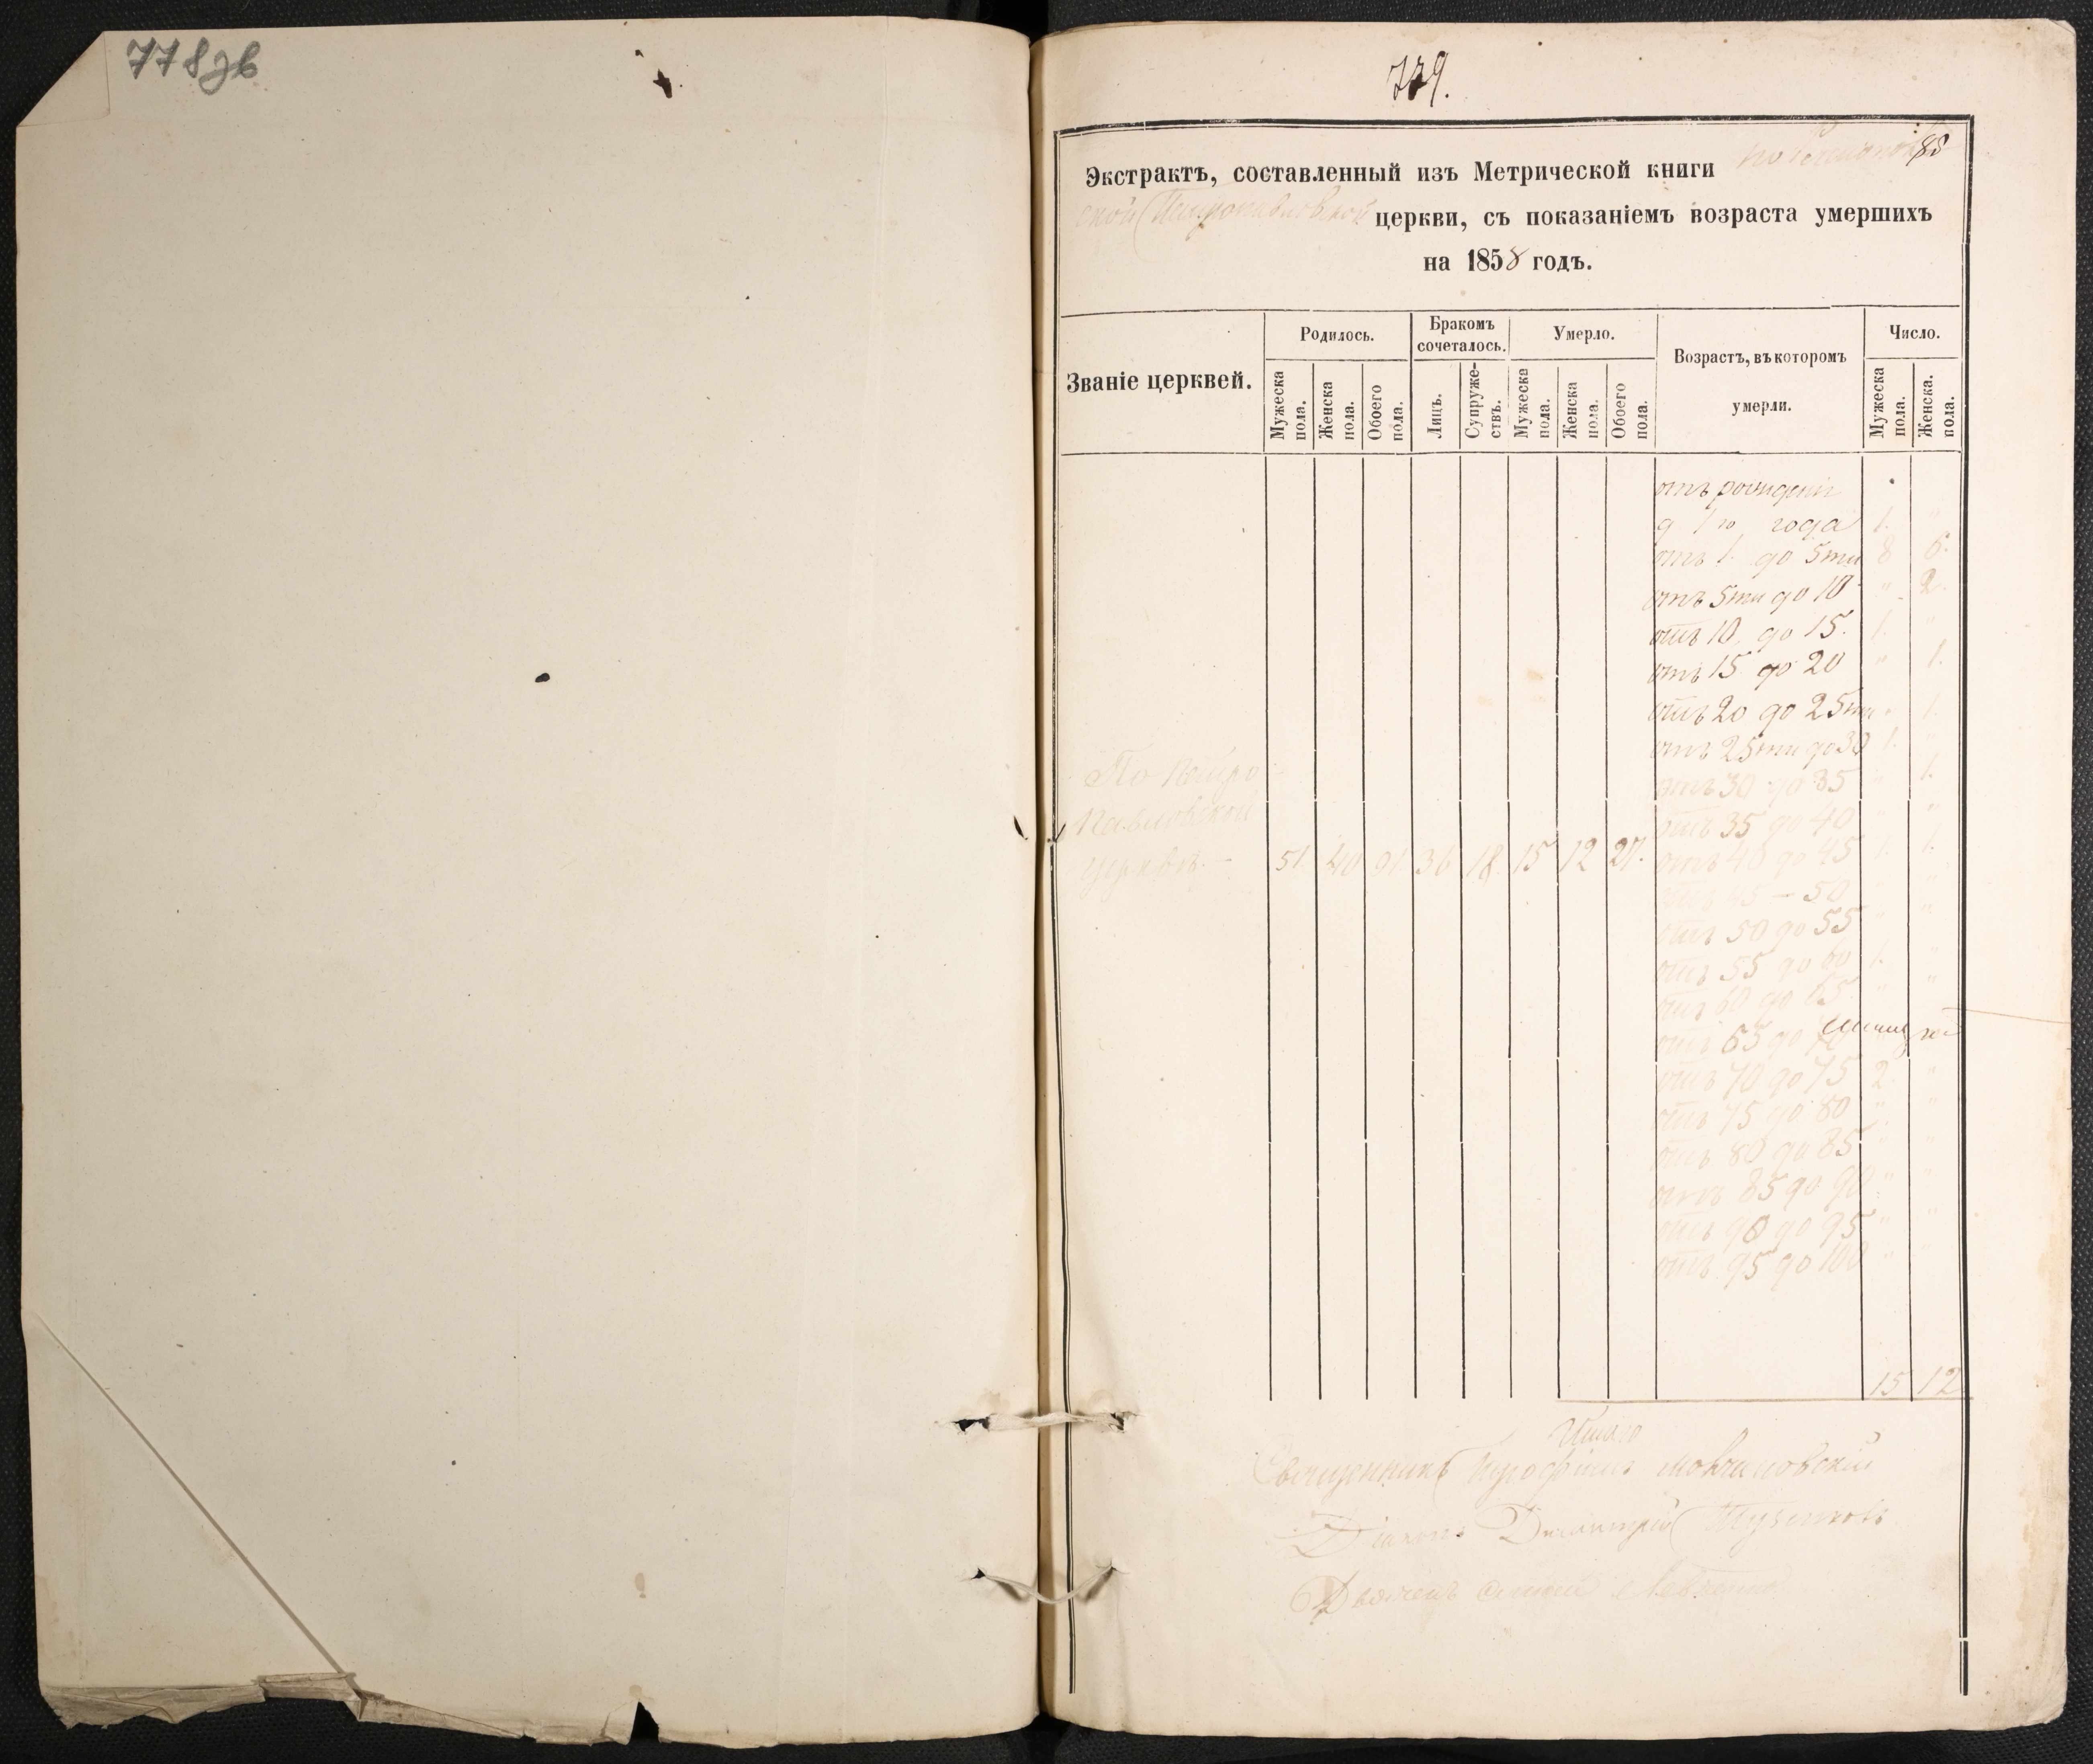 778зв
779.
85
Экстрактъ, составленный изъ Метрической книги
ской Петропавловской церкви, съ показаніемъ возраста умершихъ
на 1858 годъ.
Званіе церквей.
Родилось.
Бракомъ сочеталось.
Умерло.
Возрастъ, въ которомъ умерли.
Число.
Мужеска пола.
Женска пола.
Обоего пола.
Лицъ.
Супружествъ.
Мужеска пола.
Женска пола.
Обоего пола.
Мужеска пола.
Женска. пола.
отъ рожденія
д 1го года 1. "
отъ 1. до 5ти 8 6.
отъ 5ти до 10 " 2.
отъ 10 до 15. 1. "
отъ 15 до 20 " 1.
отъ 20 до 25ти " 1.
отъ 25ти до 30 1. "
отъ 30 до 35 " 1.
отъ 35 до 40 " "
По Петро
Павловской
церкви. — 51 40 91 36 18 15 12 27.
отъ 40 до 45 1. 1.
отъ 45 — 50 " "
отъ 50 до 55 " "
отъ 55 до 60 1. "
отъ 60 до 65 " "
отъ 65 до 70
отъ 70 до 75 2. "
отъ 75 до 80 " "
отъ 80 до 85 " "
отъ 85 до 90 " "
отъ 90 до 95 " "
отъ 95 до 100 " "
15 12
Итого
Священникъ
Діаконъ Димитрій